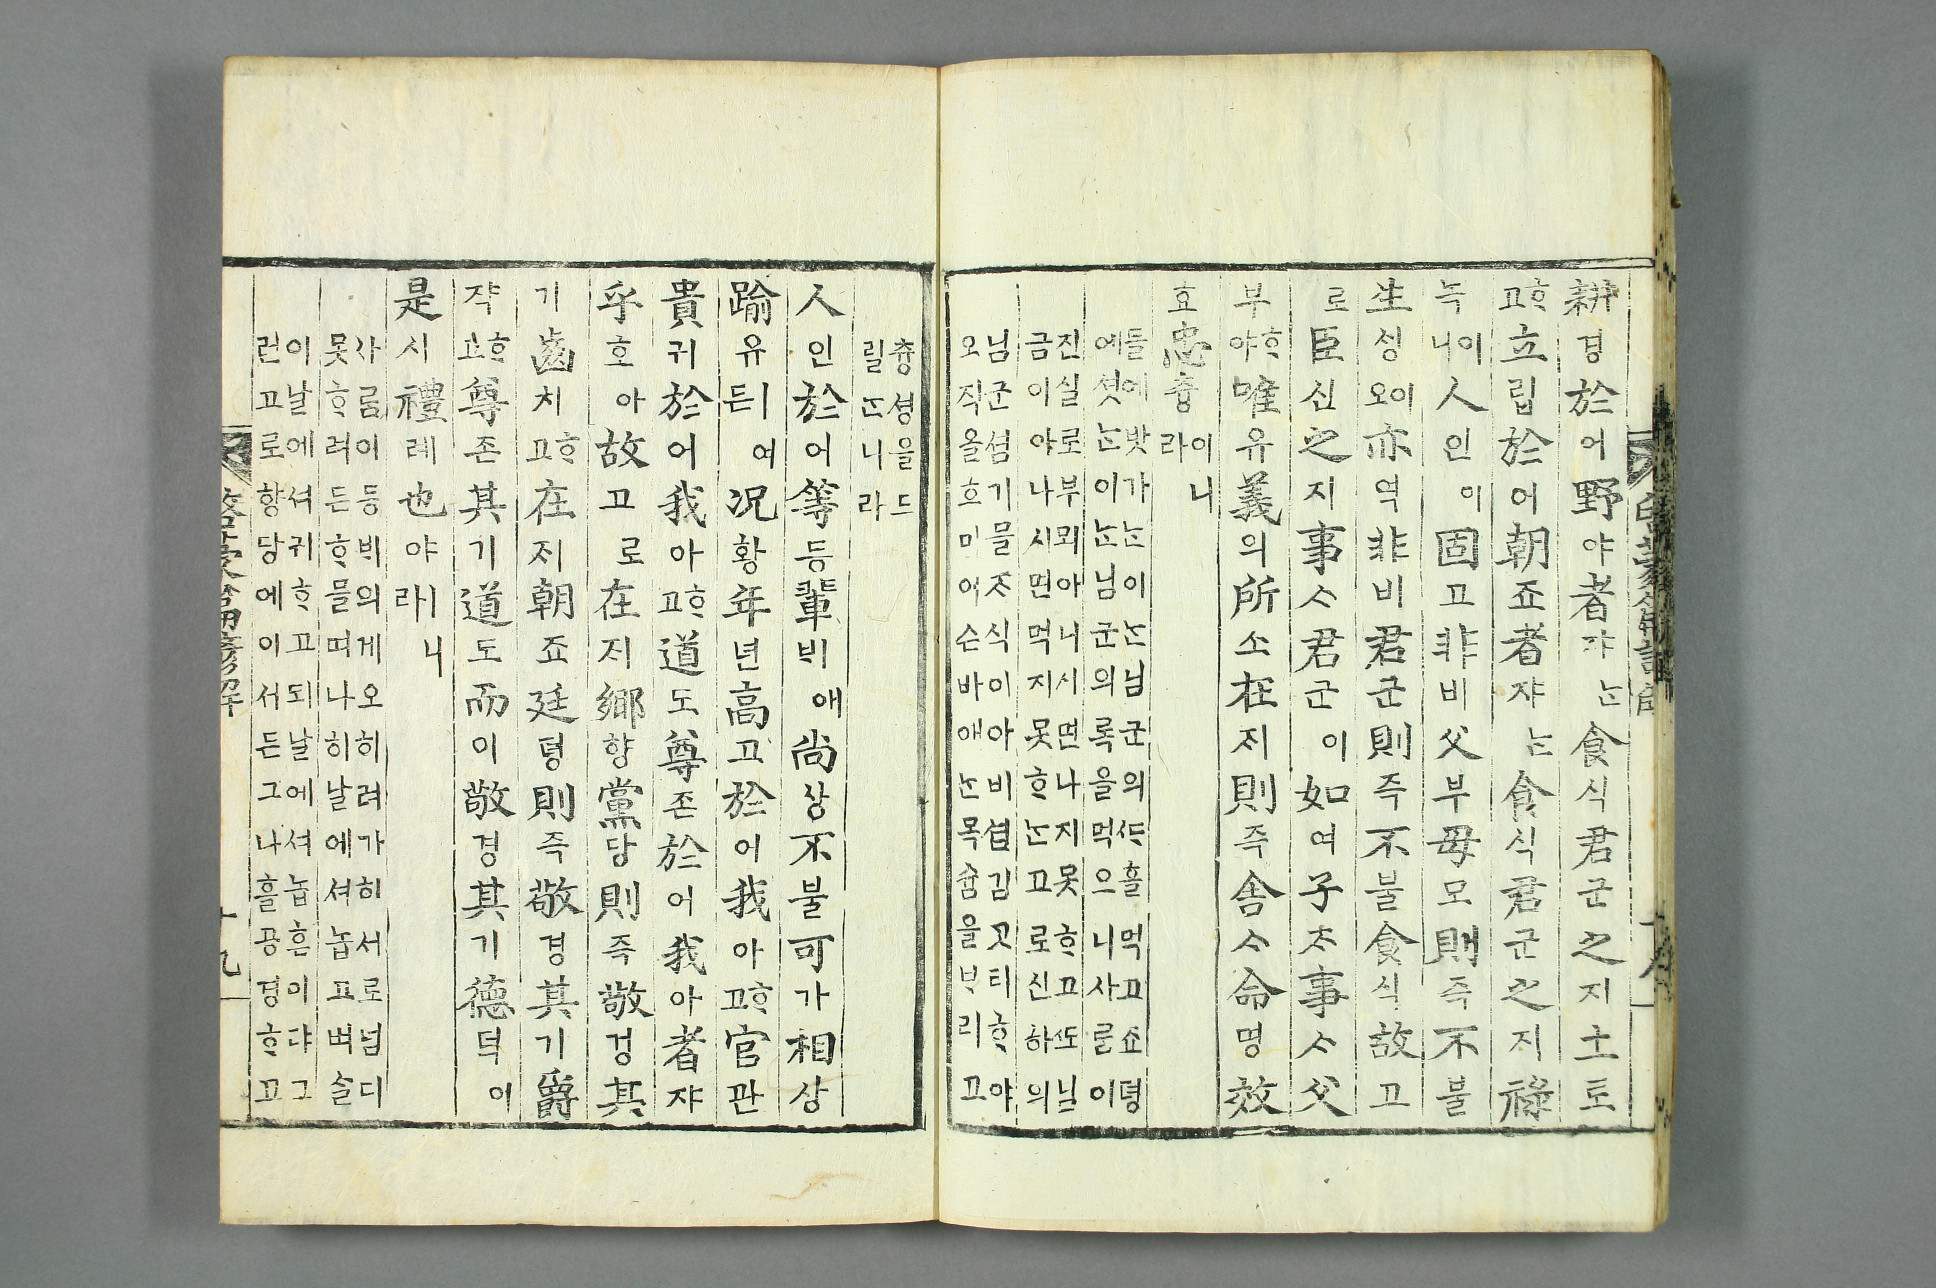 啓蒙篇諺解 十八
耕경於어野야者쟈ᄂᆞᆫ食식君군之지土토
ᄒᆞ고立립於어朝죠者쟈ᄂᆞᆫ食식君군之지祿
녹이니人인이固고非비父부母모則즉不불
生ᄉᆡᆼ이오亦역非비君군則즉不불食식故고
로臣신之지事ᄉᆞ君군이如여子ᄌᆞ事ᄉᆞ父
부ᄒᆞ야唯유義의所소在ᄌᆡ則즉舍ᄉᆞ命명效
효忠츙이니라
들에밧가ᄂᆞᆫ이ᄂᆞᆫ님군의ᄯᅡ흘먹고죠뎡
에셧ᄂᆞᆫ이ᄂᆞᆫ님군의록을먹으니사ᄅᆞᆷ이
진실로부뫼아니시면나지못ᄒᆞ고ᄯᅩ님
금이아니시면먹지못ᄒᆞᄂᆞᆫ고로신하의
님군섬기믈ᄌᆞ식이아비셤김ᄀᆞᆺ티ᄒᆞ야
오직올흐미이슨바애ᄂᆞᆫ목숨을ᄇᆞ리고
츙셩을드
릴ᄂᆞ니라
人인於어等등輩ᄇᆡ애尙샹不불可가相샹
踰유ㅣ든여况황年년高고於어我아ᄒᆞ고官관
貴귀於어我아ᄒᆞ고道도尊존於어我아者쟈
乎호아故고로在ᄌᆡ鄕향黨당則즉敬경其
기齒치ᄒᆞ고在ᄌᆡ朝죠廷뎡則즉敬경其기爵
쟉ᄒᆞ고尊존其기道도而이敬경其기德덕이
是시禮례也야ㅣ니라
사ᄅᆞᆷ이등ᄇᆡ의게오히려가히서로넘디
못ᄒᆞ려든ᄒᆞ믈며나히날에셔놉고벼슬
이날에셔귀ᄒᆞ고되날에셔놉흔이댜그
런고로향당에이셔든그나흘공경ᄒᆞ고
啓蒙篇諺解 十九